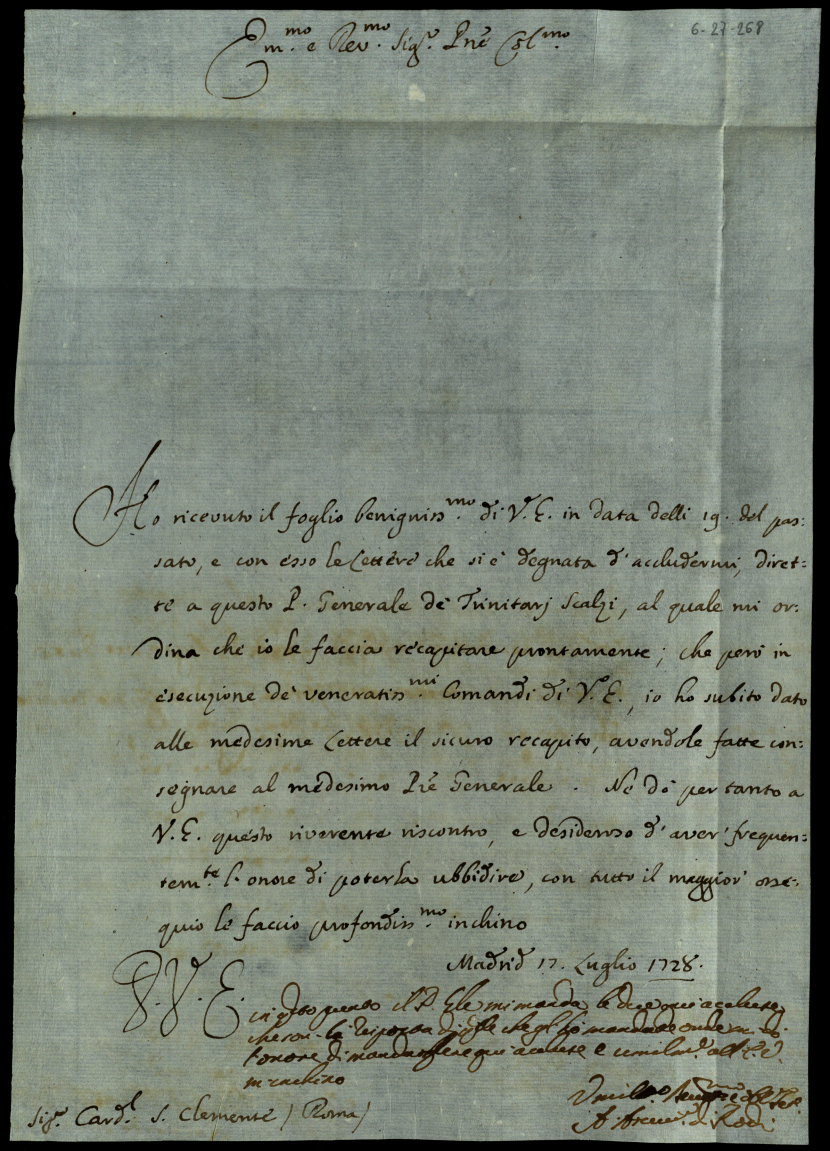 6-27-268
Em.mo e Rev.mo Sig.r Prne Col.mo
Ho ricevuto il foglio benigniss.mo di V.E. in data delli 19. del pas:
sato, e con esso le Lettere che si è degnata d'accludermi, diret-
te a questo P. Generale de Trinitarj Scalzi, al quale mi or:
dina che io le faccia recapitare prontamente; che però in
esecuzione de' veneratiss.mi Comandi di V.E., io ho subito dato
alle medesime Lettere il sicuro recapito, avendole fatte con:
segnare al medesimo Prē Generale. Ne dò per tanto a
V.E. questo riverente riscontro, e desideroso d'aver' frequen:
tem.te l'onore di poterla ubbidire, con tutto il maggior' osse:
quio le faccio profondiss.mo inchino
Madrid 17. Luglio 1728.
V.E. in questo punto il P. Gle mi manda le due qui accluse,
che son la risposta di quelle che gli ho mandate onde
l'onore di mandargliele qui accluse e umilm.e all'E.V.
m'inchino
Umill.o
A. Arciv.o di Rodi
Sig.r Card.l S. Clemente / Roma /